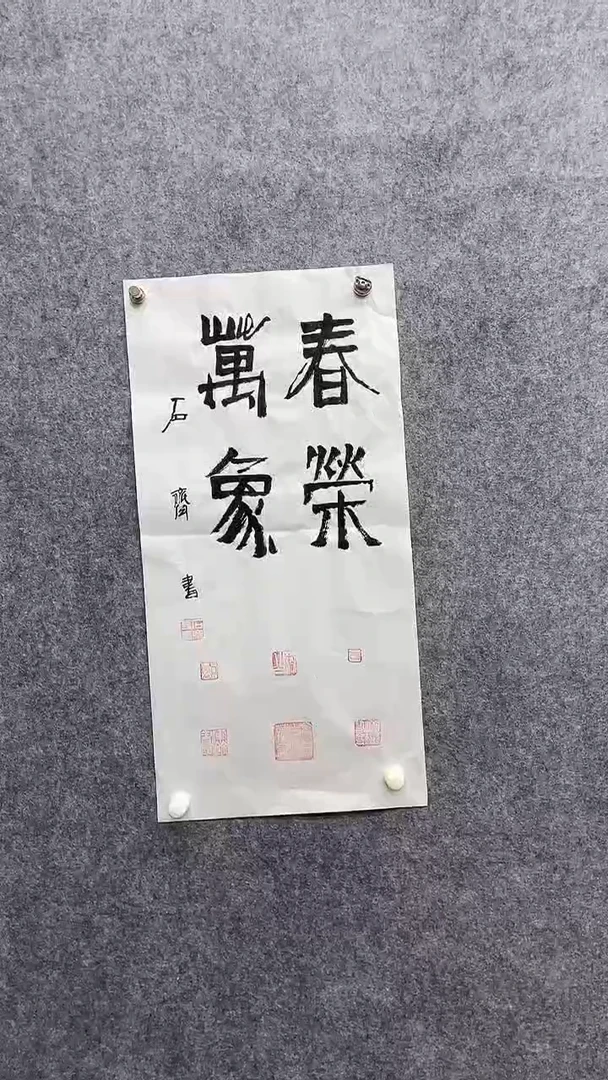 春榮
萬象
石齋書